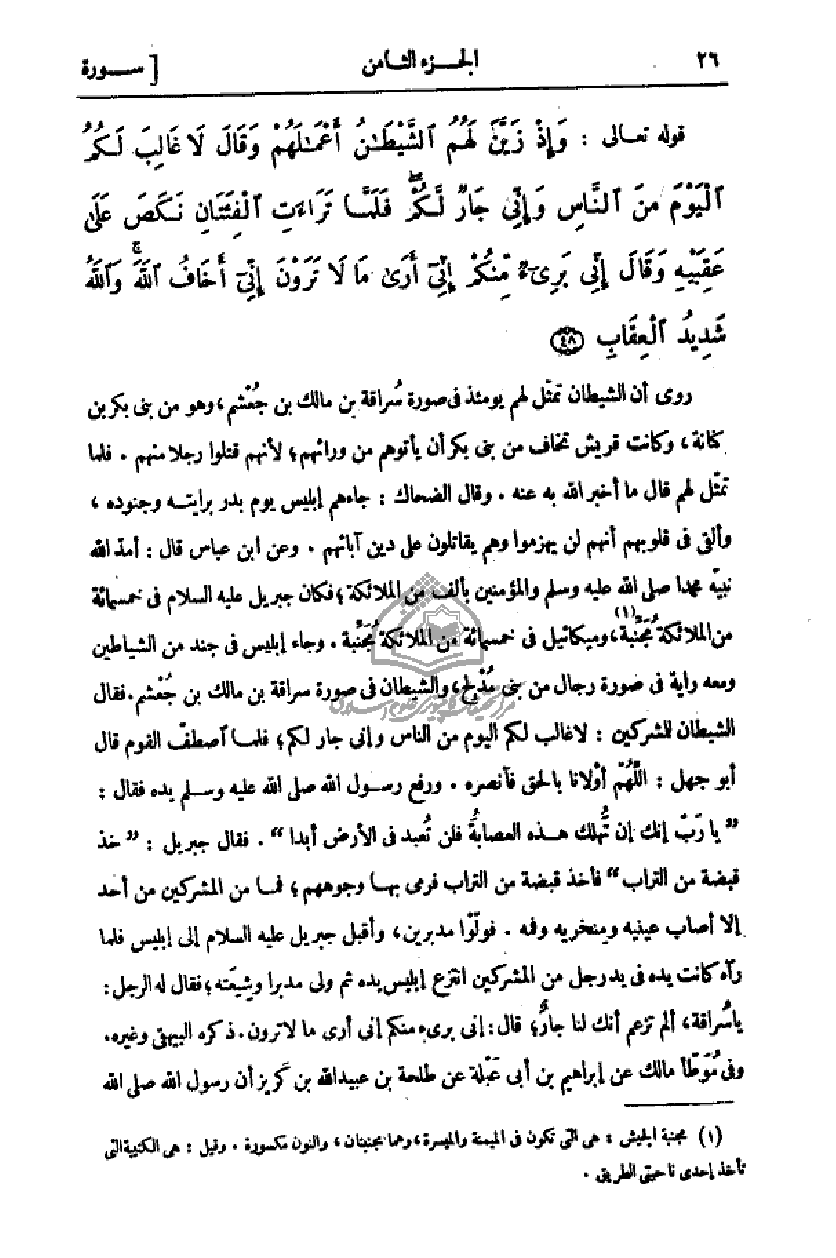 ٢٦ الجزء الثامن [ سورة
قوله تعالى : وَإِذْ زَيَّنَ لَهُمُ ٱلشَّيْطَٰنُ أَعْمَٰلَهُمْ وَقَالَ لَا غَالِبَ لَكُمُ
ٱلْيَوْمَ مِنَ ٱلنَّاسِ وَإِنِّى جَارٌ لَّكُمْ ۖ فَلَمَّا تَرَآءَتِ ٱلْفِئَتَانِ نَكَصَ عَلَىٰ
عَقِبَيْهِ وَقَالَ إِنِّى بَرِىٓءٌ مِّنكُمْ إِنِّىٓ أَرَىٰ مَا لَا تَرَوْنَ إِنِّىٓ أَخَافُ ٱللَّهَ ۚ وَٱللَّهُ
شَدِيدُ ٱلْعِقَابِ ٤٨
روى أن الشيطان تمثّل لهم يومئذ فى صورة سُراقة بن مالك بن جُعْشم، وهو من بنى بكر بن
كنانة، وكانت قريش تخاف من بنى بكر أن يأتوهم من ورائهم؛ لأنهم قتلوا رجلا منهم . فلما
تمثّل لهم قال ما أخبر الله به عنه . وقال الضحاك : جاءهم إبليس يوم بدر برايته وجنوده ،
وألقى فى قلوبهم أنهم لن يهزموا وهم يقاتلون على دين آبائهم . وعن ابن عباس قال : أمدّ الله
نبيّه محمدا صلى الله عليه وسلم والمؤمنين بألف من الملائكة؛ فكان جبريل عليه السلام فى خمسمائة
من الملائكة مُجَنِّبة(١)، وميكائيل فى خمسمائة من الملائكة مُجَنِّبة . وجاء إبليس فى جند من الشياطين
ومعه راية فى صورة رجال من بنى مُدْلج، والشيطان فى صورة سراقة بن مالك بن جُعْشم. فقال
الشيطان للمشركين : لا غالب لكم اليوم من الناس وإنى جار لكم؛ فلما ٱصطفّ القوم قال
أبو جهل : اللَّهُمّ أوْلانا بالحق فٱنصره . ورفع رسول الله صلى الله عليه وسلم يده فقال :
”يا رَبّ إنك إن تُهلك هذه العصابةُ فلن تُعبد فى الأرض أبدا“ . فقال جبريل : ”خذ
قبضة من التراب“ فأخذ قبضة من التراب فرمى بها وجوههم؛ فما من المشركين من أحد
إلا أصاب عينيه ومنخريه وفمه . فولّوْا مدبرين، وأقبل جبريل عليه السلام إلى إبليس فلما
رآه كانت يده فى يد رجل من المشركين انتزع إبليس يده ثم ولى مدبرا وشِيعَته؛ فقال له الرجل:
ياسُراقة، ألم تزعم أنك لنا جارٌ؛ قال: إنى برىء منكم إنى أرى ما لا ترون. ذكره البيهقى وغيره.
وفى مُوَطّأ مالك عن إبراهيم بن أبى عَبْلة عن طلحة بن عبيد الله بن كَريز أن رسول الله صلى الله
(١) مجنبة الجيش : هى التى تكون فى الميمنة والميسرة، وهما مجنبتان، والنون مكسورة . وقيل : هى الكتيبة التى
تأخذ إحدى ناحيتى الطريق .